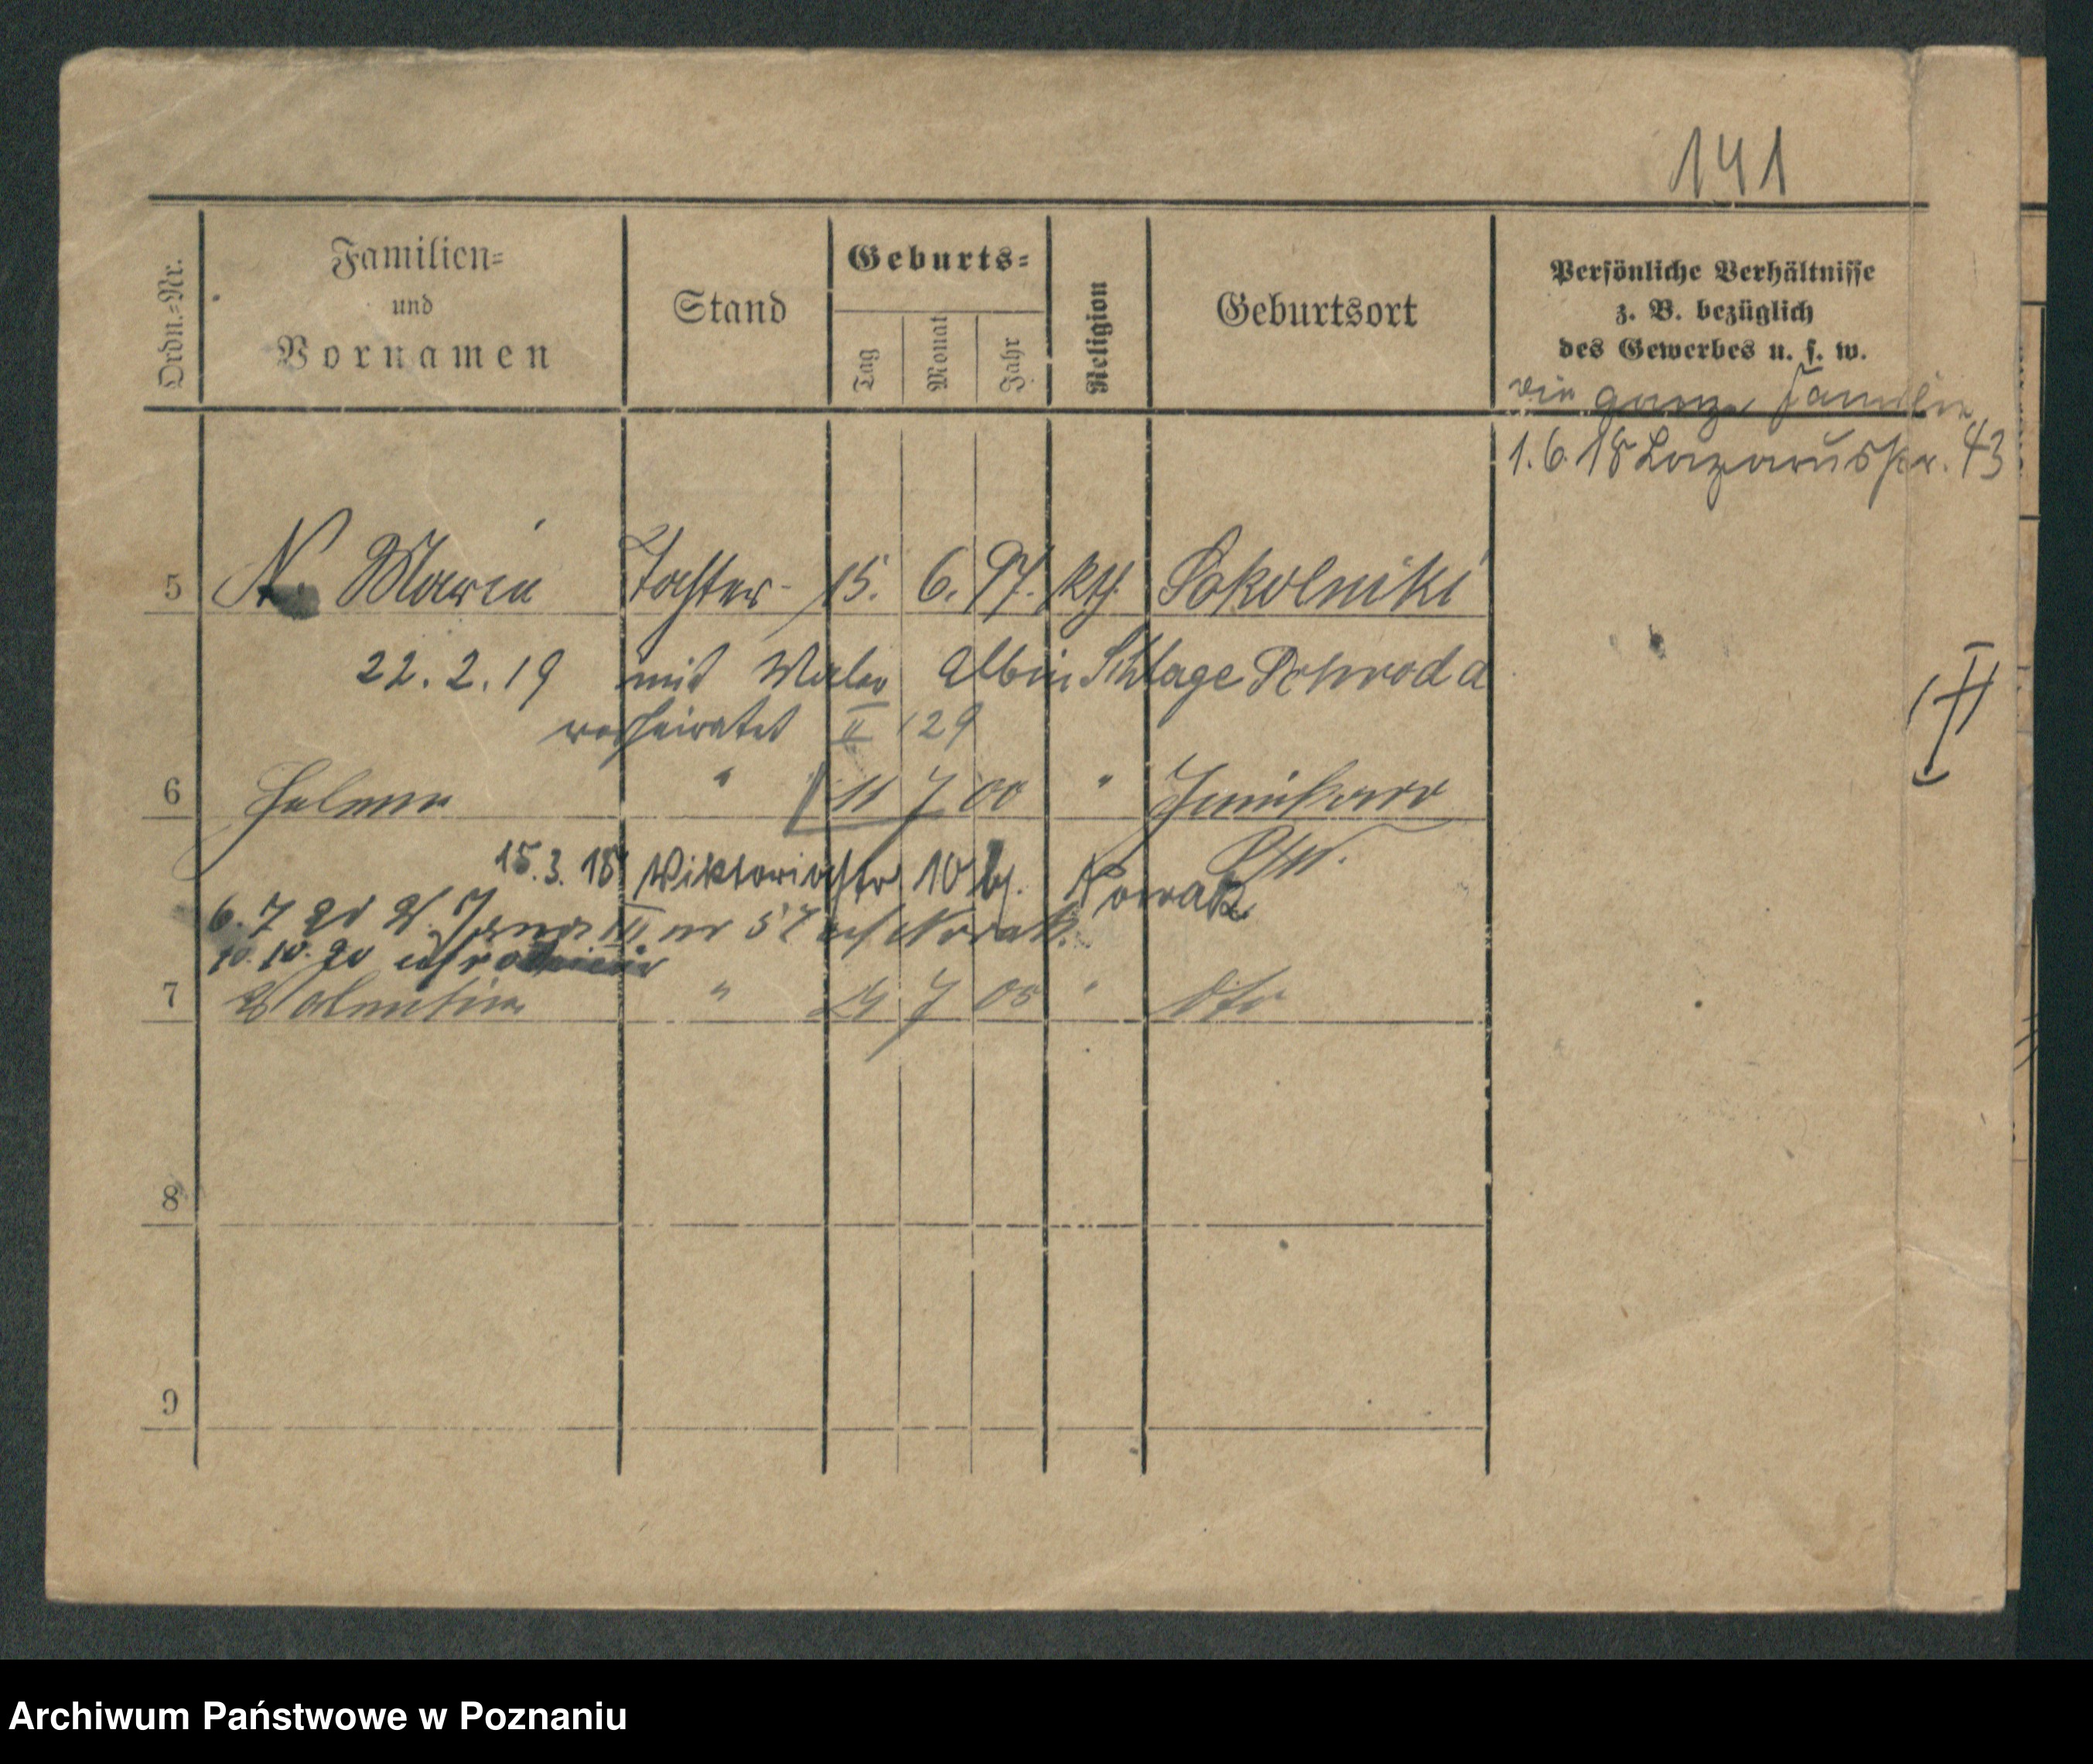 141
Ordn.-Nr.
Familien-
und
Vornamen
Stand
Geburts-
Tag
Monat
Jahr
Religion
Geburtsort
Persönliche Verhältnisse
z. B. bezüglich
des Gewerbes u. s. w.
die ganze Familie
1. 6. 18 Lazarusstr. 43
5 N. Maria Tochter 15. 6. 97. kth. Sokolniki
22. 2. 19 mit Maler Albin Schlage Schroda
verheiratet II 29
6 Helena " 11 7 00 " Junikowo
15. 3. 18 Wiktoriastr 10 bj. Nowak
6. 7 20 nr 57 Nowak
10. 10. 20
7 Valentin " 7 05 " dto
8
9
II
Archiwum Państwowe w Poznaniu